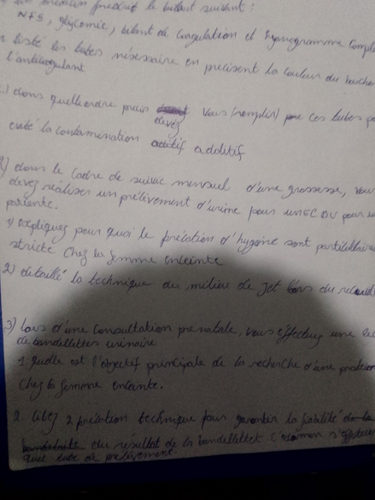 médecin prescrit le bilant suivant :
NFS, glycémie, bilant de coagulation et Iyonogramme comple
listé les tubes nécessaire en précisent la couleur du bouchon
l'anticoagulant
dans quelle ordre précis devez vous (remplir) pour ces tubes po
evité la contamination additif additif
dans le cadre de suivie mensuel d'une grossesse, vou
devez réaliser un prélèvement d'urine pour un ECBU pour u
patiente.
1) expliquez pour quoi le précation d'hygiène sont particulière
stricte chez la femme enceinte
2) détaillé la technique du milieu de jet lors du recueil
3) lors d'une consultation prénatale, vous effectuez une
de bandelettes urinaire
1. quelle est l'objectif principale de la recherche d'une protéin
chez la femme enceinte.
2. citez 2 précation technique pour garantir la fiabilité
du résultat de la bandelettes